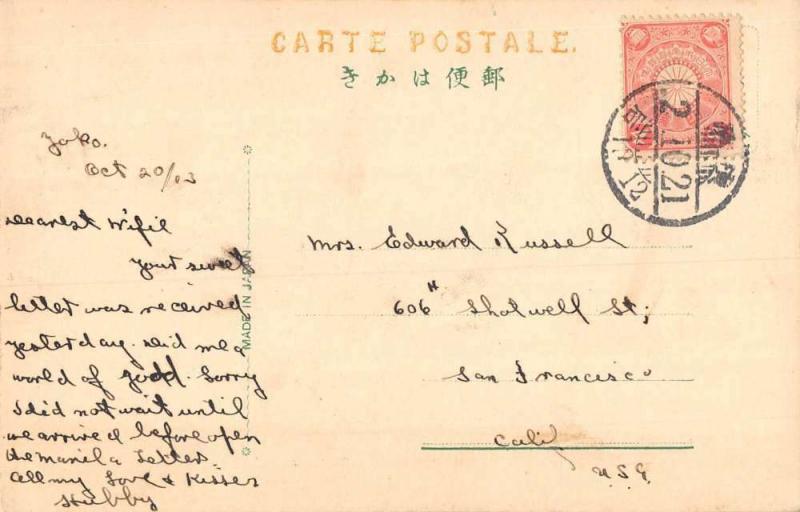 CARTE POSTALE.
きかは便郵
Yoko.
Oct 20/13
Dearest Wifie
your sweet
letter was received
yesterday. did me a
world of good. Sorry
I did not wait until
we arrived before open
the Manila Letter.
all my Love & Kisses
Hubby
MADE IN JAPAN
Mrs. Edward Russell
606 A Shotwell St;
San Francisco
Calif
U.S.A.
2.10.21